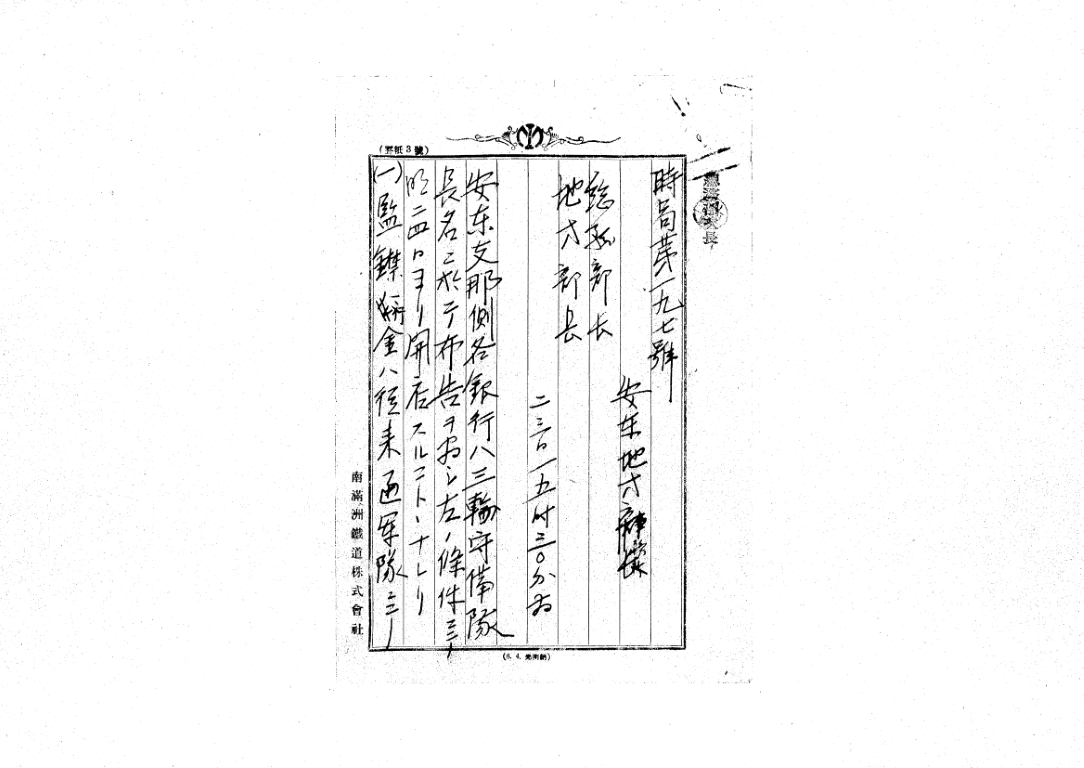 (罫紙3號)
時局第一九七號
安東地方事務所長
総務部長
地方部長
二三日一五时三〇分
安东支那側各銀行ハ三輪守備隊
長名ニ於テ布告ヲ為シ左ノ條件ニ
明二四日ヨリ開店スルコトヽナレリ
(一)塩鑛稅金ハ従来通軍隊ニ
南滿洲鐵道株式會社